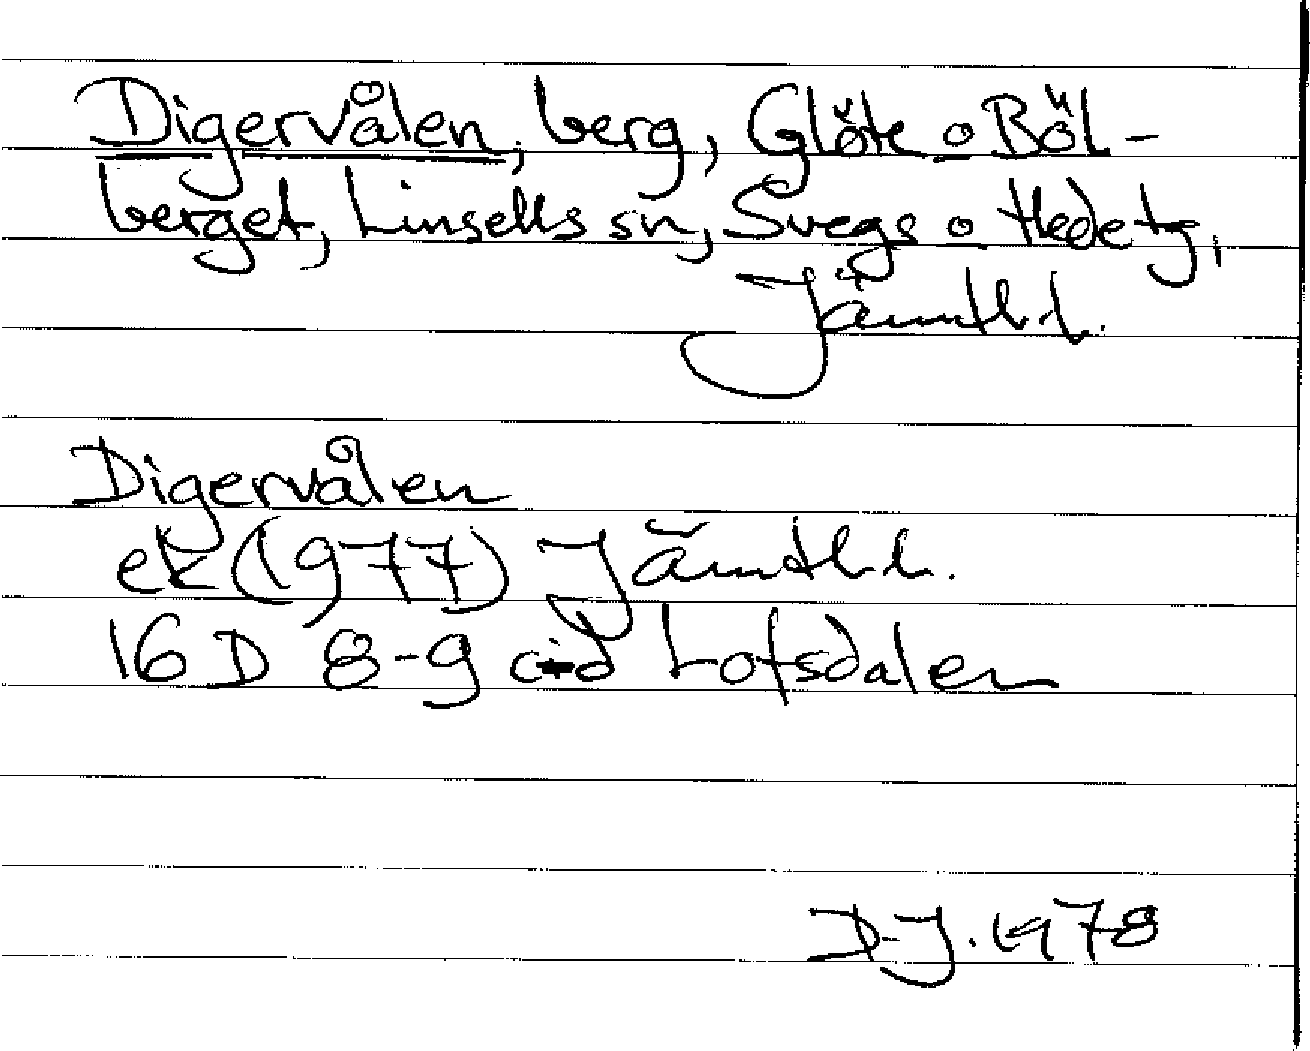 Digervålen, berg, Glöte o Böl-
berget, Linsells sn, Svegs o Hede tg,
Jämtl.l.
Digervålen
ek (1977) Jämtl.l.
16 D 8-9 c-d Lofsdalen
D-J. 1978